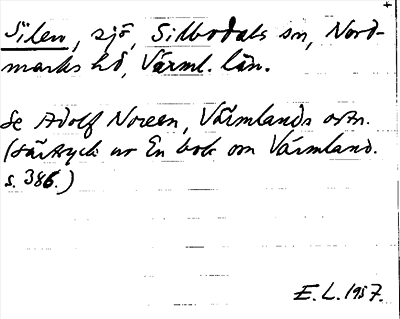 Silen, sjö, Silbodals sn, Nord-
marks hd, Värml. län.
Se Adolf Noreen, Värmlands ortn.
(särtryck ur En bok om Värmland.
s. 386.)
E. L. 1957.